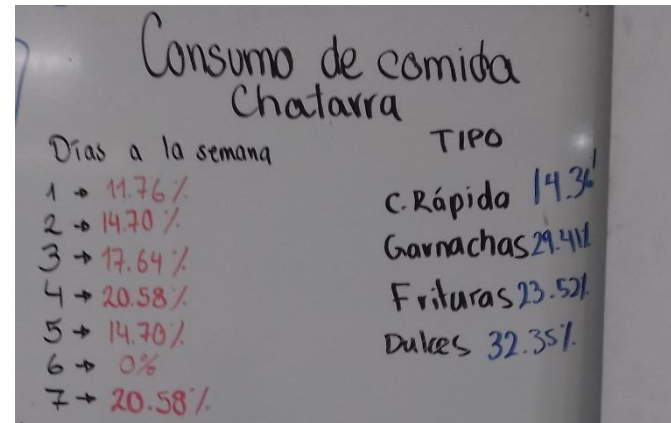 Consumo de comida
Chatarra
Días a la semana
1 → 11.76%
2 → 14.70%
3 → 17.64%
4 → 20.58%
5 → 14.70%
6 → 0%
7 → 20.58%
TIPO
C. Rápida 14.36%
Garnachas 29.41%
Frituras 23.52%
Dulces 32.35%